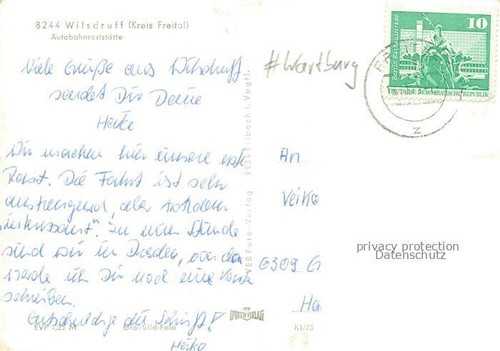 8244 Wilsdruff (Kreis Freital)
Autobahnraststätte
Viele Grüße aus Wilsdruff
sendet Dir Deine
Heike
Wir machen hier unsere erste
Rast. Die Fahrt ist sehr
anstrengend, aber trotzdem
interessant. In einer Stunde
sind wir in Dresden, von dort
werde ich Dir noch eine Karte
schreiben.
Entschuldige die Schrift!
Heike
EVP 0,25 M
VEB Foto-Verlag
#Wartburg
10
DEUTSCHE DEMOKRATISCHE REPUBLIK
An
Veiko
privacy protection
Datenschutz
6309 G
Ha